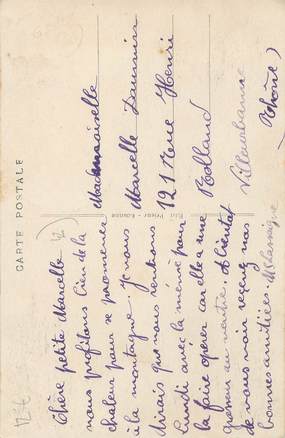 CARTE POSTALE
Chère petite Marcelle
nous profitons bien de la
chaleur pour se promener
à la montagne. Je vous
dirais que nous rendons
lundi avec la mémé pour
la faire opérer car elle a une
grosseur au ventre. A bientôt
de vous voir recevez nos
bonnes amitiées.
Mademoiselle
Marcelle
121 rue Henri
Rolland
Villeurbanne
Rhône)